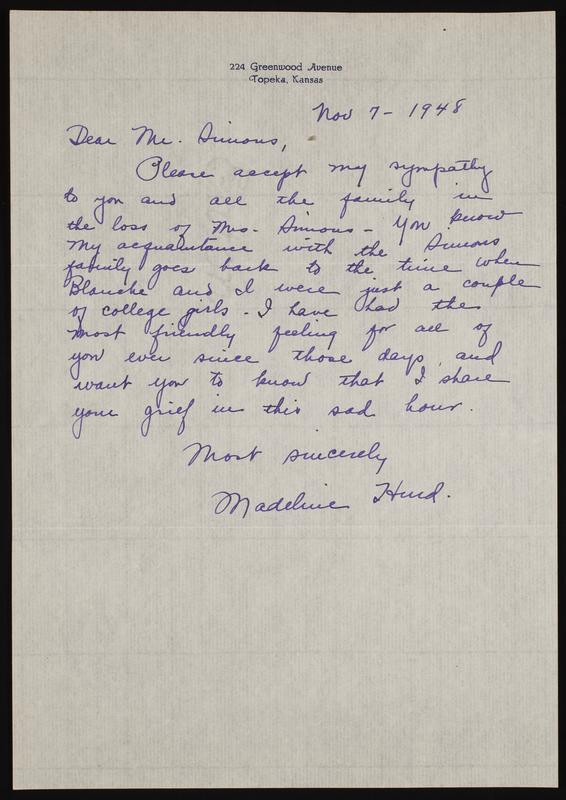 224 Greenwood Avenue
Topeka, Kansas
Nov 7 - 1948
Dear Mr. Simons,
Please accept my sympathy
to you and all the family in
the loss of Mrs. Simons - You know
my acquaintance with the Simons
family goes back to the time when
Blanche and I were just a couple
of college girls - I have had the
most friendly feeling for all of
you ever since those days, and
want you to know that I share
your grief in this sad hour.
Most sincerely
Madeline Hurd.